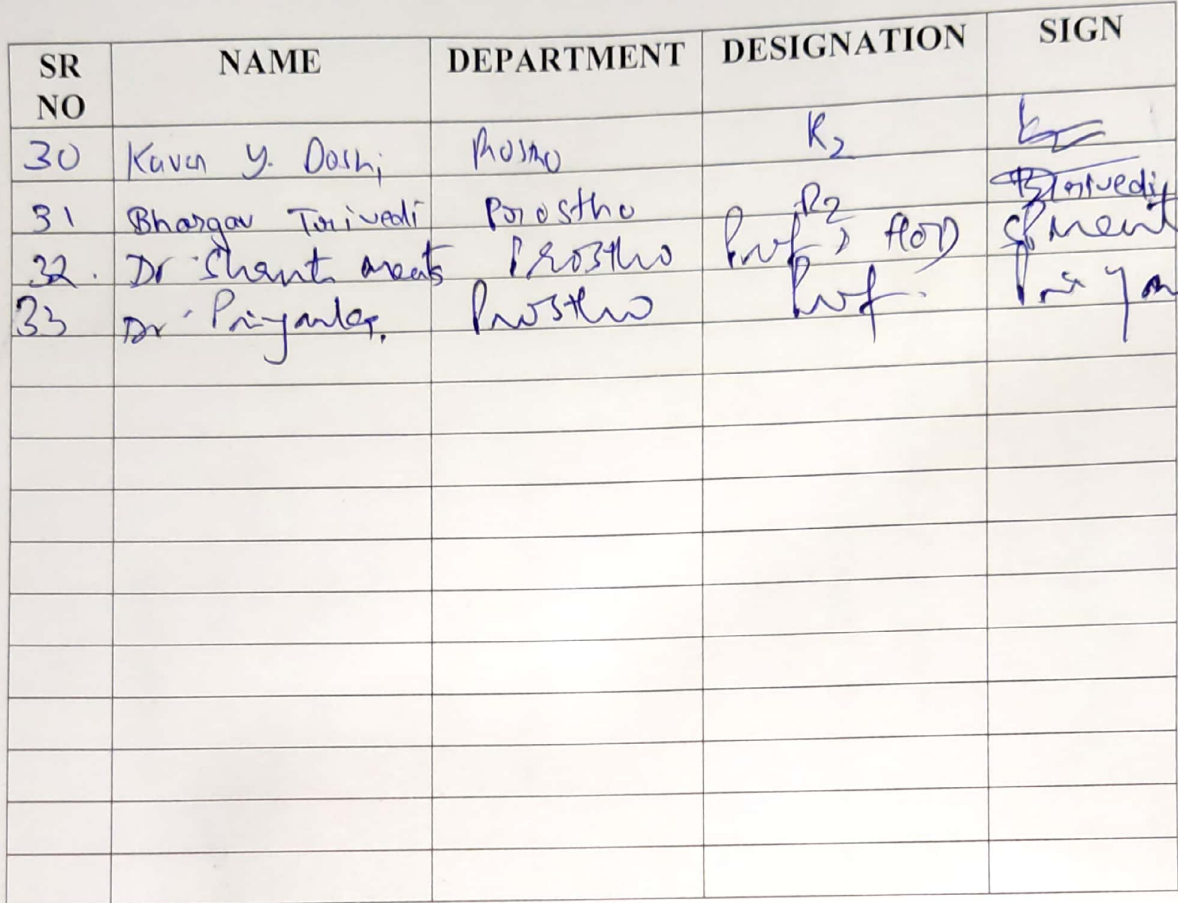 SR NO NAME DEPARTMENT DESIGNATION SIGN
30 Kavan Y. Doshi Prostho R2
31 Bhargav Trivedi Prostho R2 Btrivedi
32. Dr Shanti Prostho Prof, HOD
33 Dr Priyanka. Prostho Prof. Priyan